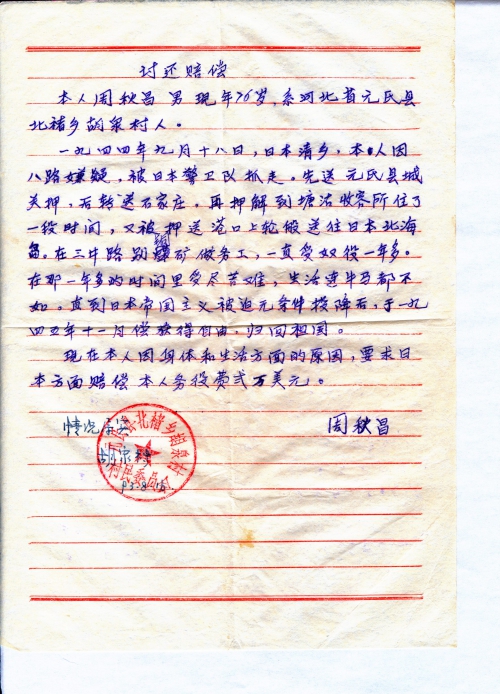 讨还赔偿
本人周秋昌 男 现年76岁,系河北省元氏县
北褚乡胡泉村人。
一九四四年九月十八日,日本清乡,本人因
八路嫌疑,被日本警卫队抓走。先送元氏县城
关押,后转送石家庄,再押解到塘沽收容所住了
一段时间,又被押送港口上轮船送往日本北海
在三井 矿做务工,一直受奴役一年多。
在那一年多的时间里受尽苦难,生活连牛马都不
如。直到日本帝国主义被迫无条件投降后,于一九
四五年十一月偿获得自由,归回祖国。
现在本人因身体和生活方面的原因,要求日
本方面赔偿本人务役费贰万美元。
周秋昌
情况属实
胡泉村
93.8.
元氏县北褚乡胡泉村
村民委员会